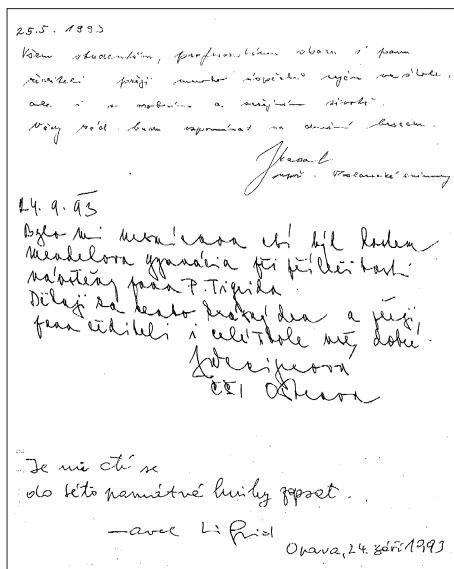 25.5. 1993
Všem studentům, profesorskému sboru i panu
řediteli přeji mnoho úspěchů nejen ve škole,
ale i v osobním a životě.
Vždy rád budu vzpomínat na dnešní besedu.
Poslanecké sněmovny
24. 9. 93
Bylo mi ctí být hostem
Mendelova gymnázia při příležitosti
návštěvy pana P. Tigrida.
Děkuji za tento krásný den a přeji
panu řediteli i celé škole vše dobré.
ČŠI Ostrava
Je mi ctí se
do této památné knihy zapsat.
Pavel Tigrid
Opava, 24. září 1993